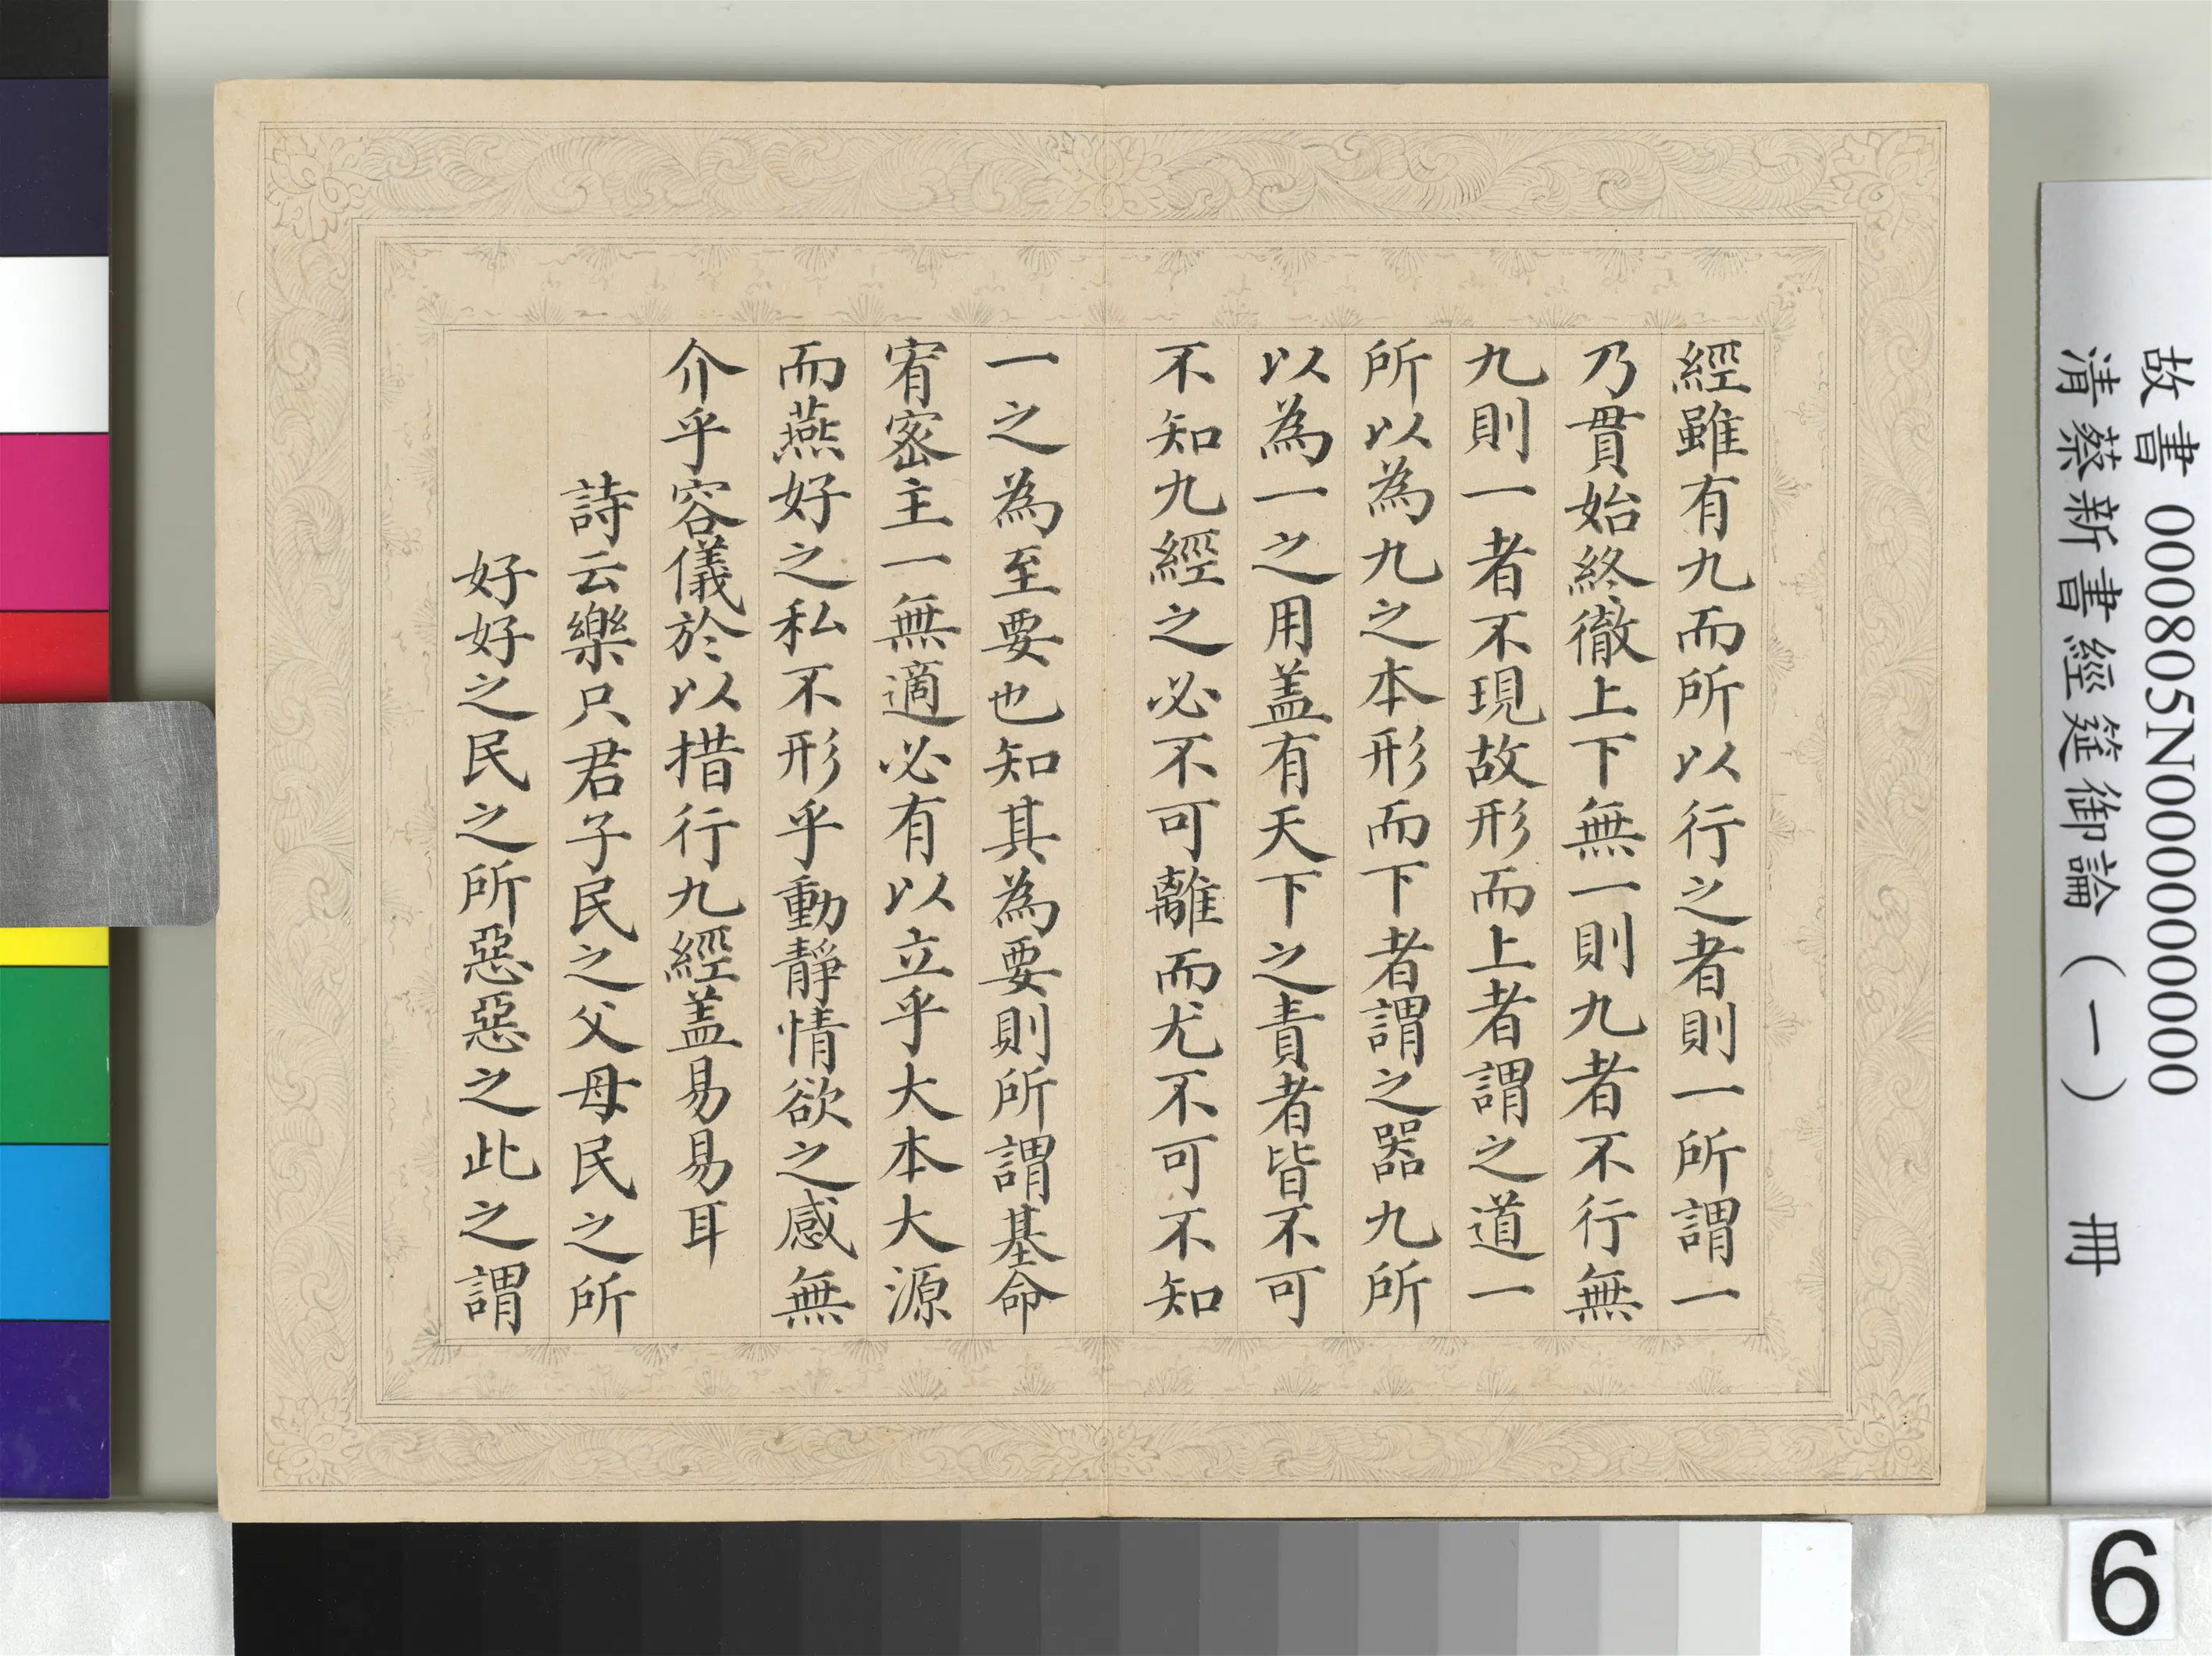 經雖有九而所以行之者則一所謂一
乃貫始終徹上下無一則九者不行無
九則一者不現故形而上者謂之道一
所以為九之本形而下者謂之器九所
以為一之用盖有天下之責者皆不可
不知九經之必不可離而尤不可不知
一之為至要也知其為要則所謂基命
宥密主一無適必有以立乎大本大源
而燕好之私不形乎動靜情欲之感無
介乎容儀於以措行九經盖易易耳
詩云樂只君子民之父母民之所
好好之民之所惡惡之此之謂
故書 000805N000000000
清蔡新書經筵御論（一） 冊
6